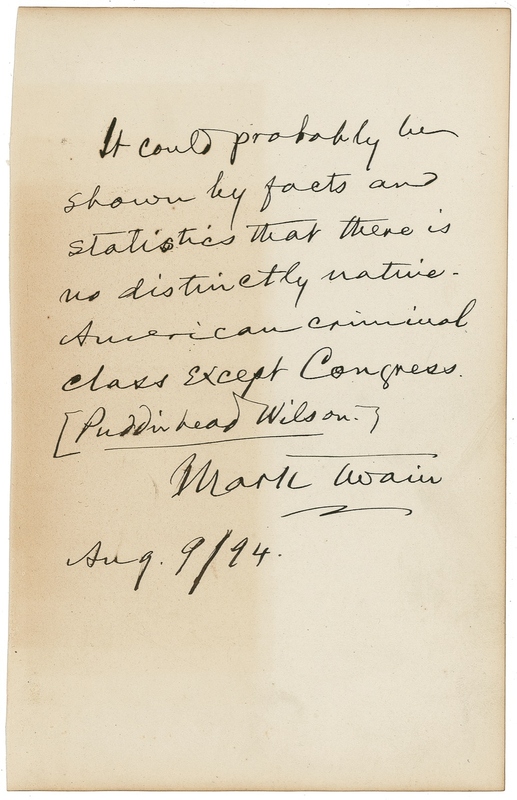 It could probably be
shown by facts and
statistics that there is
no distinctly native-
American criminal
class except Congress.
[Puddinhead Wilson.]
Mark Twain
Aug. 9/94.